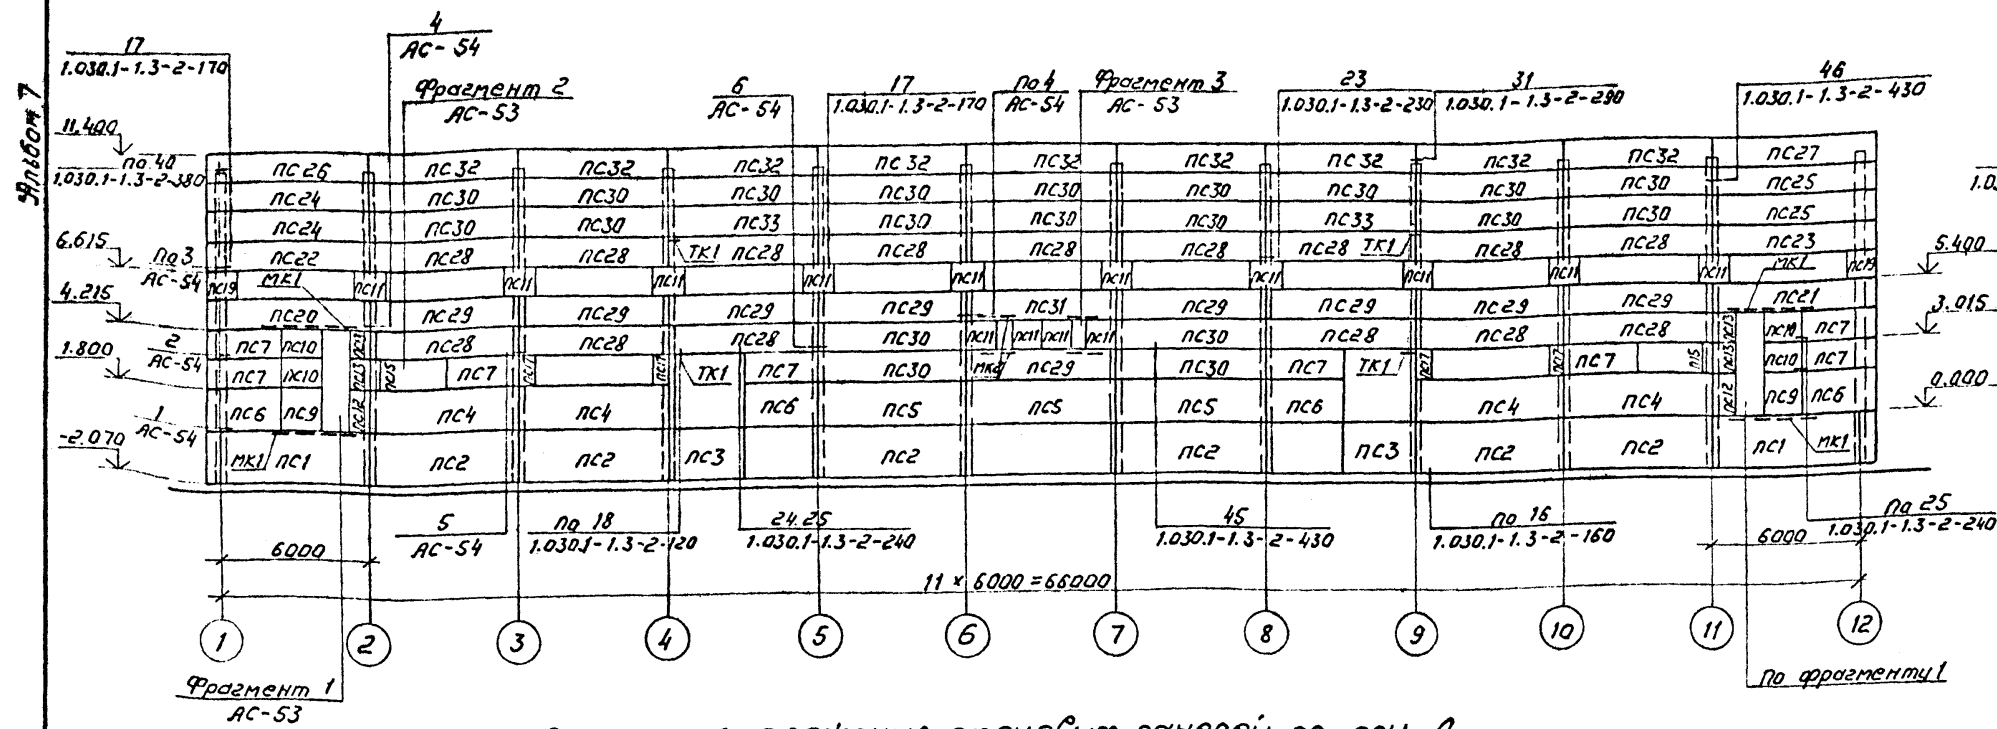 Альбом 7
17
1.030.1-1.3-2-170
4
АС-54
Фрагмент 2
АС-53
6
АС-54
17
1.030.1-1.3-2-170
по 4
АС-54
Фрагмент 3
АС-53
23
1.030.1-1.3-2-230
31
1.030.1-1.3-2-290
46
1.030.1-1.3-2-430
11.400
по 40
1.030.1-1.3-2-380
1.03
ПС26 ПС32 ПС32 ПС32 ПС32 ПС32 ПС32 ПС32 ПС32 ПС32 ПС27
ПС24 ПС30 ПС30 ПС30 ПС30 ПС30 ПС30 ПС30 ПС30 ПС30 ПС25
ПС24 ПС30 ПС30 ПС33 ПС30 ПС30 ПС30 ПС33 ПС30 ПС30 ПС25
6.615
ПС22 ПС28 ПС28 ТК1 ПС28 ПС28 ПС28 ПС28 ПС28 ТК1 ПС28 ПС28 ПС23
5.400
по 3
АС-54
ПС19 МК1 ПС11 ПС11 ПС11 ПС11 ПС11 ПС11 ПС11 ПС11 ПС11 ПС11 МК1 ПС19
4.215
ПС20 ПС29 ПС29 ПС29 ПС29 ПС31 ПС29 ПС29 ПС29 ПС29 ПС21
3.015
2
АС-54
ПС7 ПС10 ПС11 ПС28 ПС28 ПС28 ПС30 ПС11 ПС11 ПС11 ПС11 ПС30 ПС28 ПС28 ПС28 ПС13 ПС10 ПС7
1.800
ПС7 ПС10 ПС13 ПС15 ПС7 ПС17 ПС17 ТК1 ПС7 ПС30 МК2 ПС29 ПС30 ПС7 ТК1 ПС17 ПС17 ПС7 ПС15 ПС13 ПС10 ПС7
0.000
1
АС-54
ПС6 ПС9 ПС12 ПС4 ПС4 ПС6 ПС5 ПС5 ПС5 ПС6 ПС4 ПС4 ПС12 ПС9 ПС6
-2.070
МК1 ПС1 ПС2 ПС2 ПС3 ПС2 ПС2 ПС3 ПС2 ПС2 ПС1 МК1
5
АС-54
по 18
1.030.1-1.3-2-120
24.25
1.030.1-1.3-2-240
45
1.030.1-1.3-2-430
по 16
1.030.1-1.3-2-160
по 25
1.030.1-1.3-2-240
6000
6000
11 × 6000 = 66000
1 2 3 4 5 6 7 8 9 10 11 12
Фрагмент 1
АС-53
По фрагменту 1